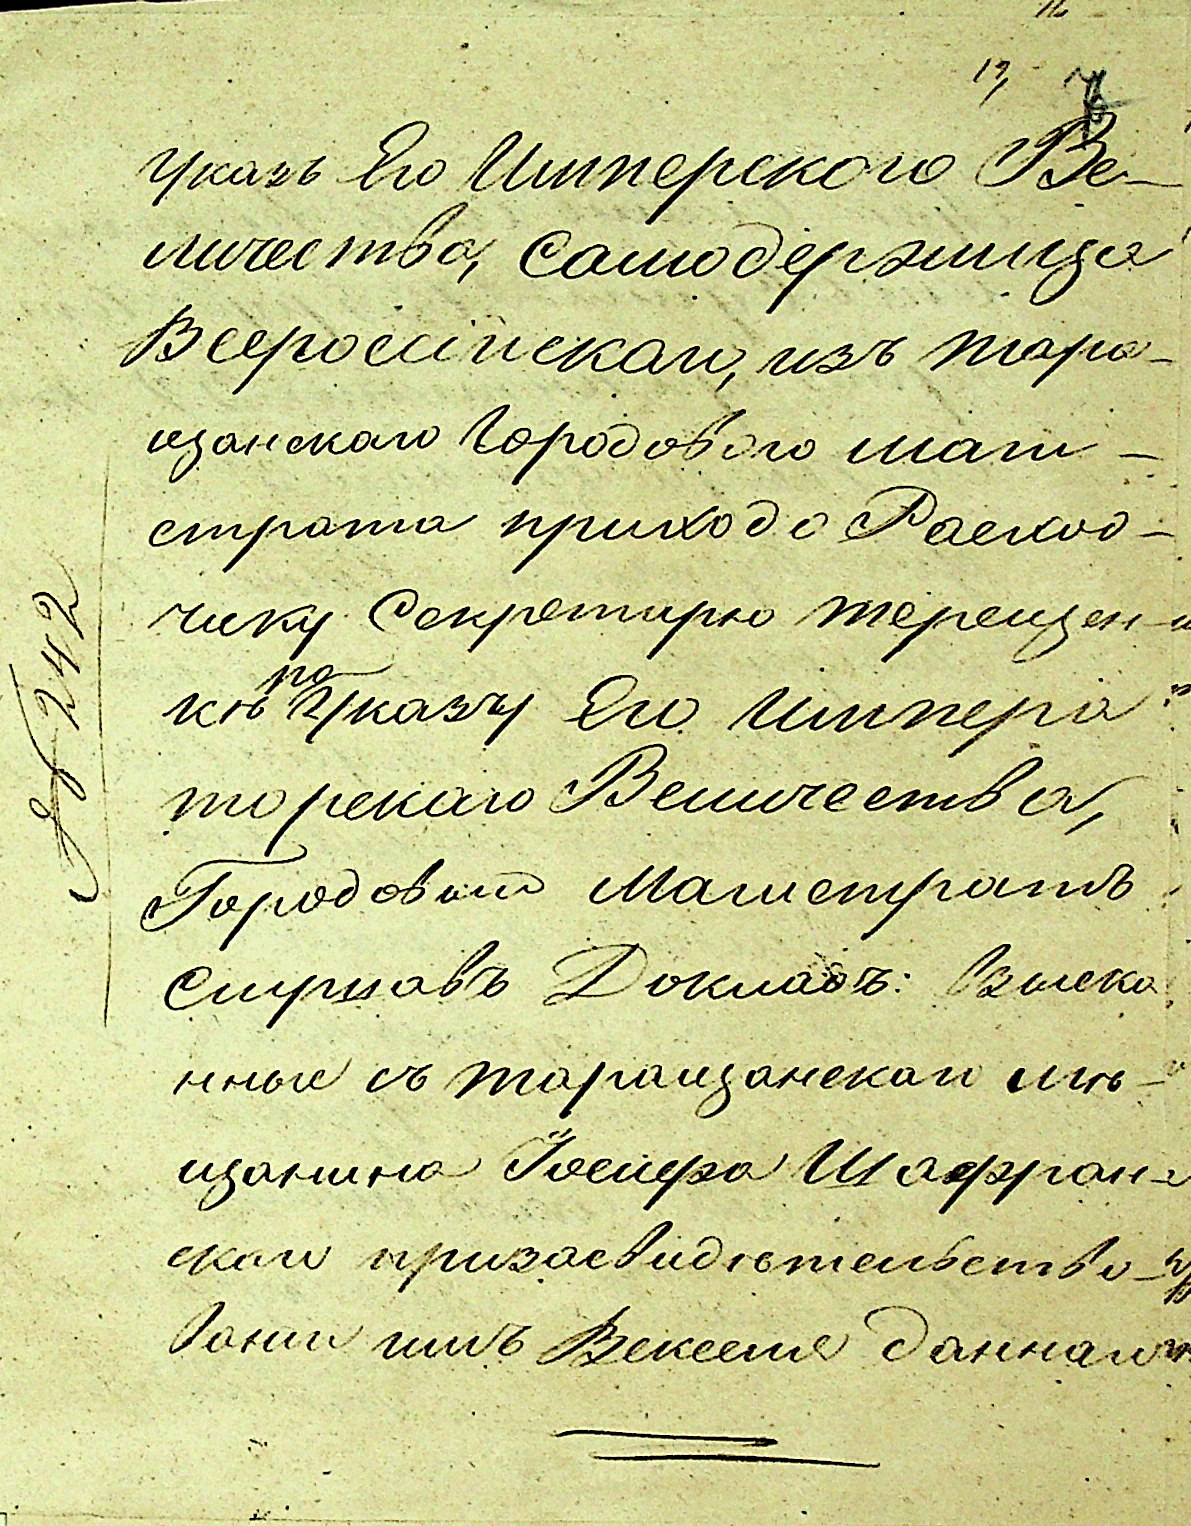 12
Указъ Его Имперского Ве-
личества, Самодержица
Всероссійскаго, изъ тара-
щанскаго Городового маги-
страта приходо Расход-
чику Секретарю терещен-
кѣ по Указу Его Импера
торскаго Величества,
Городовый Магистратъ
слушавъ Докладъ: Взыска
нные съ таращанскаго мѣ-
щанина Іосифа Шафран-
скаго призасвидѣтельство-
ваніи имъ Векселя даннаго
№ 242